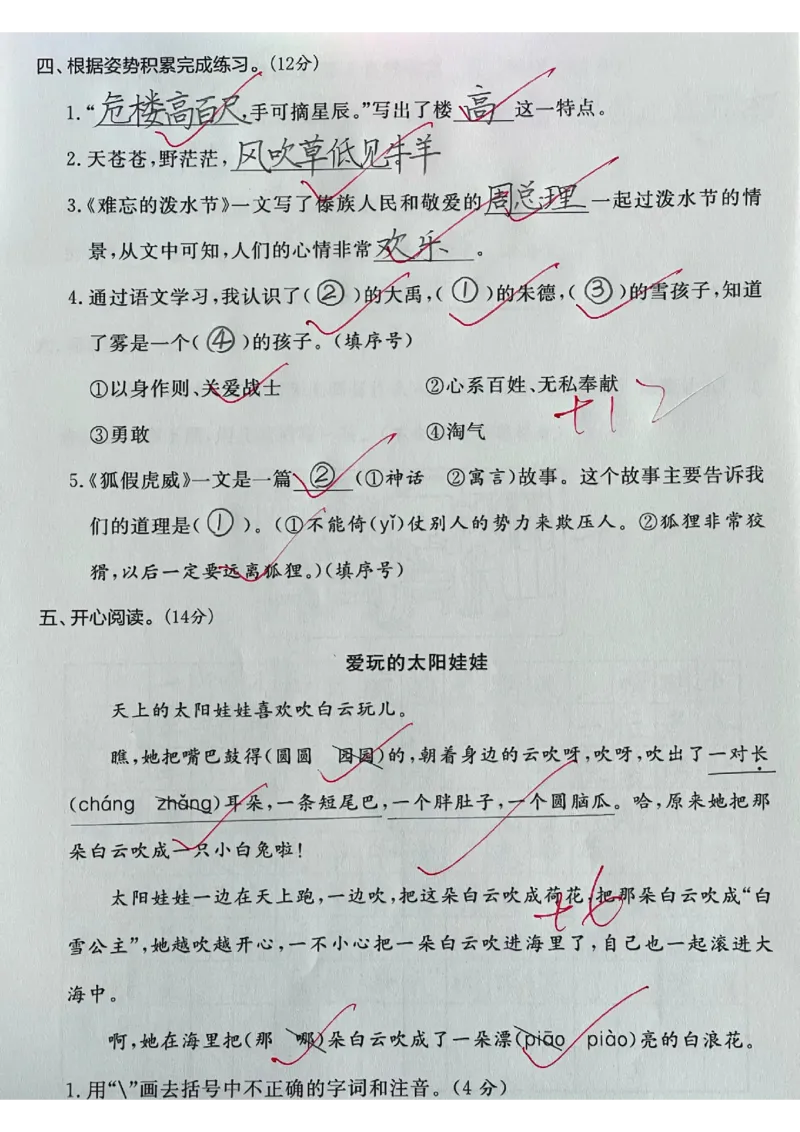 四、根据姿势积累完成练习。(12分)
1.“危楼高百尺,手可摘星辰。”写出了楼高这一特点。
2.天苍苍,野茫茫,风吹草低见牛羊
3.《难忘的泼水节》一文写了傣族人民和敬爱的周总理一起过泼水节的情
景,从文中可知,人们的心情非常欢乐。
4.通过语文学习,我认识了(②)的大禹,(①)的朱德,(③)的雪孩子,知道
了雾是一个(④)的孩子。(填序号)
①以身作则、关爱战士 ②心系百姓、无私奉献
+12
③勇敢 ④淘气
5.《狐假虎威》一文是一篇②(①神话 ②寓言)故事。这个故事主要告诉我
们的道理是(①)。(①不能倚(yǐ)仗别人的势力来欺压人。②狐狸非常狡
猾,以后一定要远离狐狸。)(填序号)
五、开心阅读。(14分)
爱玩的太阳娃娃
天上的太阳娃娃喜欢吹白云玩儿。
瞧,她把嘴巴鼓得(圆圆 园园)的,朝着身边的云吹呀,吹呀,吹出了一对长
(cháng zhǎng)耳朵,一条短尾巴,一个胖肚子,一个圆脑瓜。哈,原来她把那
朵白云吹成一只小白兔啦!
太阳娃娃一边在天上跑,一边吹,把这朵白云吹成荷花,把那朵白云吹成“白
+6
雪公主”,她越吹越开心,一不小心把一朵白云吹进海里了,自己也一起滚进大
海中。
啊,她在海里把(那 哪)朵白云吹成了一朵漂(piāo piào)亮的白浪花。
1.用“\”画去括号中不正确的字词和注音。(4分)